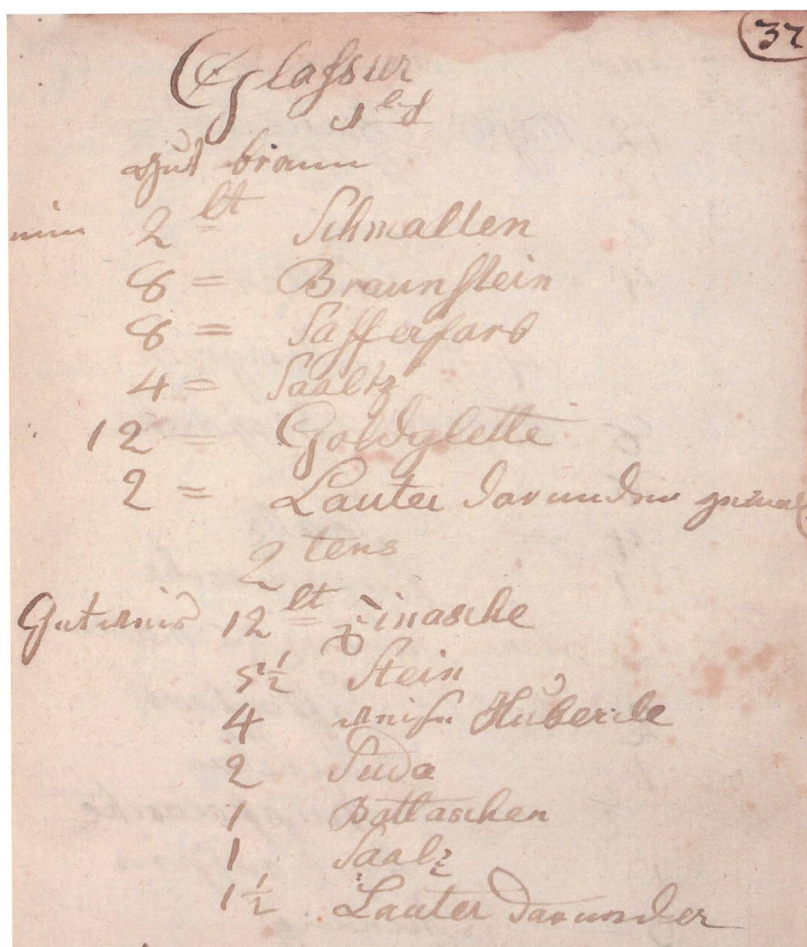 37
Glassur
1 let
gut braun
nim 2 lt Schmalten
8 = Braunstein
8 = Safferfarb
4 = Saaltz
12 = Goldglette
2 = Lauter darunder
2 tens
Gut weis 12 lt Zinasche
5½ Stein
4 weise Hüberde
2 Suda
1 Pottaschen
1 Saalz
1½ Lauter darunder